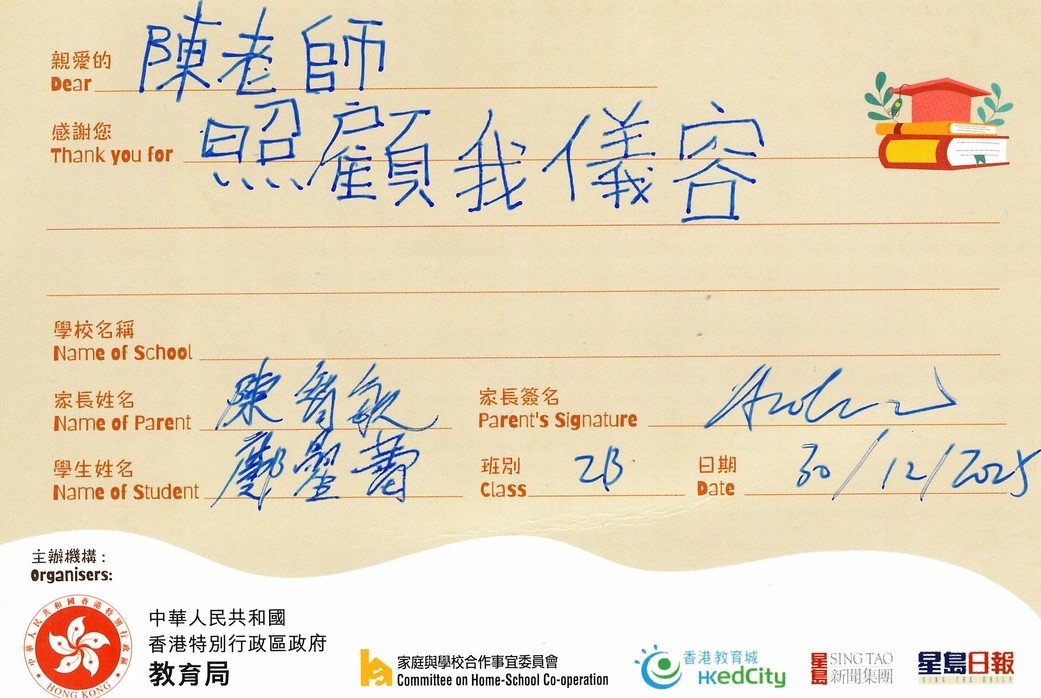 親愛的
Dear 陳老師
感謝您
Thank you for 照顧我儀容
學校名稱
Name of School
家長姓名
Name of Parent 陳智敏
家長簽名
Parent's Signature
學生姓名
Name of Student 鄺
班別
Class 2B
日期
Date 30/12/2025
主辦機構：
Organisers:
中華人民共和國香港特別行政區
HONG KONG
中華人民共和國
香港特別行政區政府
教育局
家庭與學校合作事宜委員會
Committee on Home-School Co-operation
香港教育城
HKedCity
星島
SING TAO
新聞集團
星島日報
SING TAO DAILY